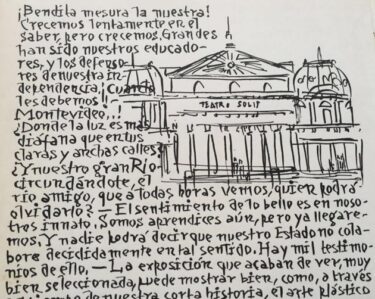 ¡Bendita mesura la nuestra!
Crecemos lentamente en el
saber, pero crecemos. Grandes
han sido nuestros educado-
res, y los defenso-
res de nuestra in-
dependencia, ¡Cuanto
les debemos!!
Montevideo,..!
TEATRO SOLIS
¿Donde la luz es más
diáfana que en tus
claras y anchas calles?
¿Y nuestro gran Río
circundándote, el
río amigo, que a todas horas vemos, quien podrá
olvidarlo? — El sentimiento de lo bello es en noso-
tros innato. Somos aprendices aún, pero ya llegare-
mos. Y nadie podrá decir que nuestro Estado no cola-
bore decididamente en tal sentido. Hay mil testimo-
nios de ello, — La exposición que acaban de ver, muy
bien seleccionada, puede mostrar bien, como, a través
de nuestra corta historia, el arte plástico